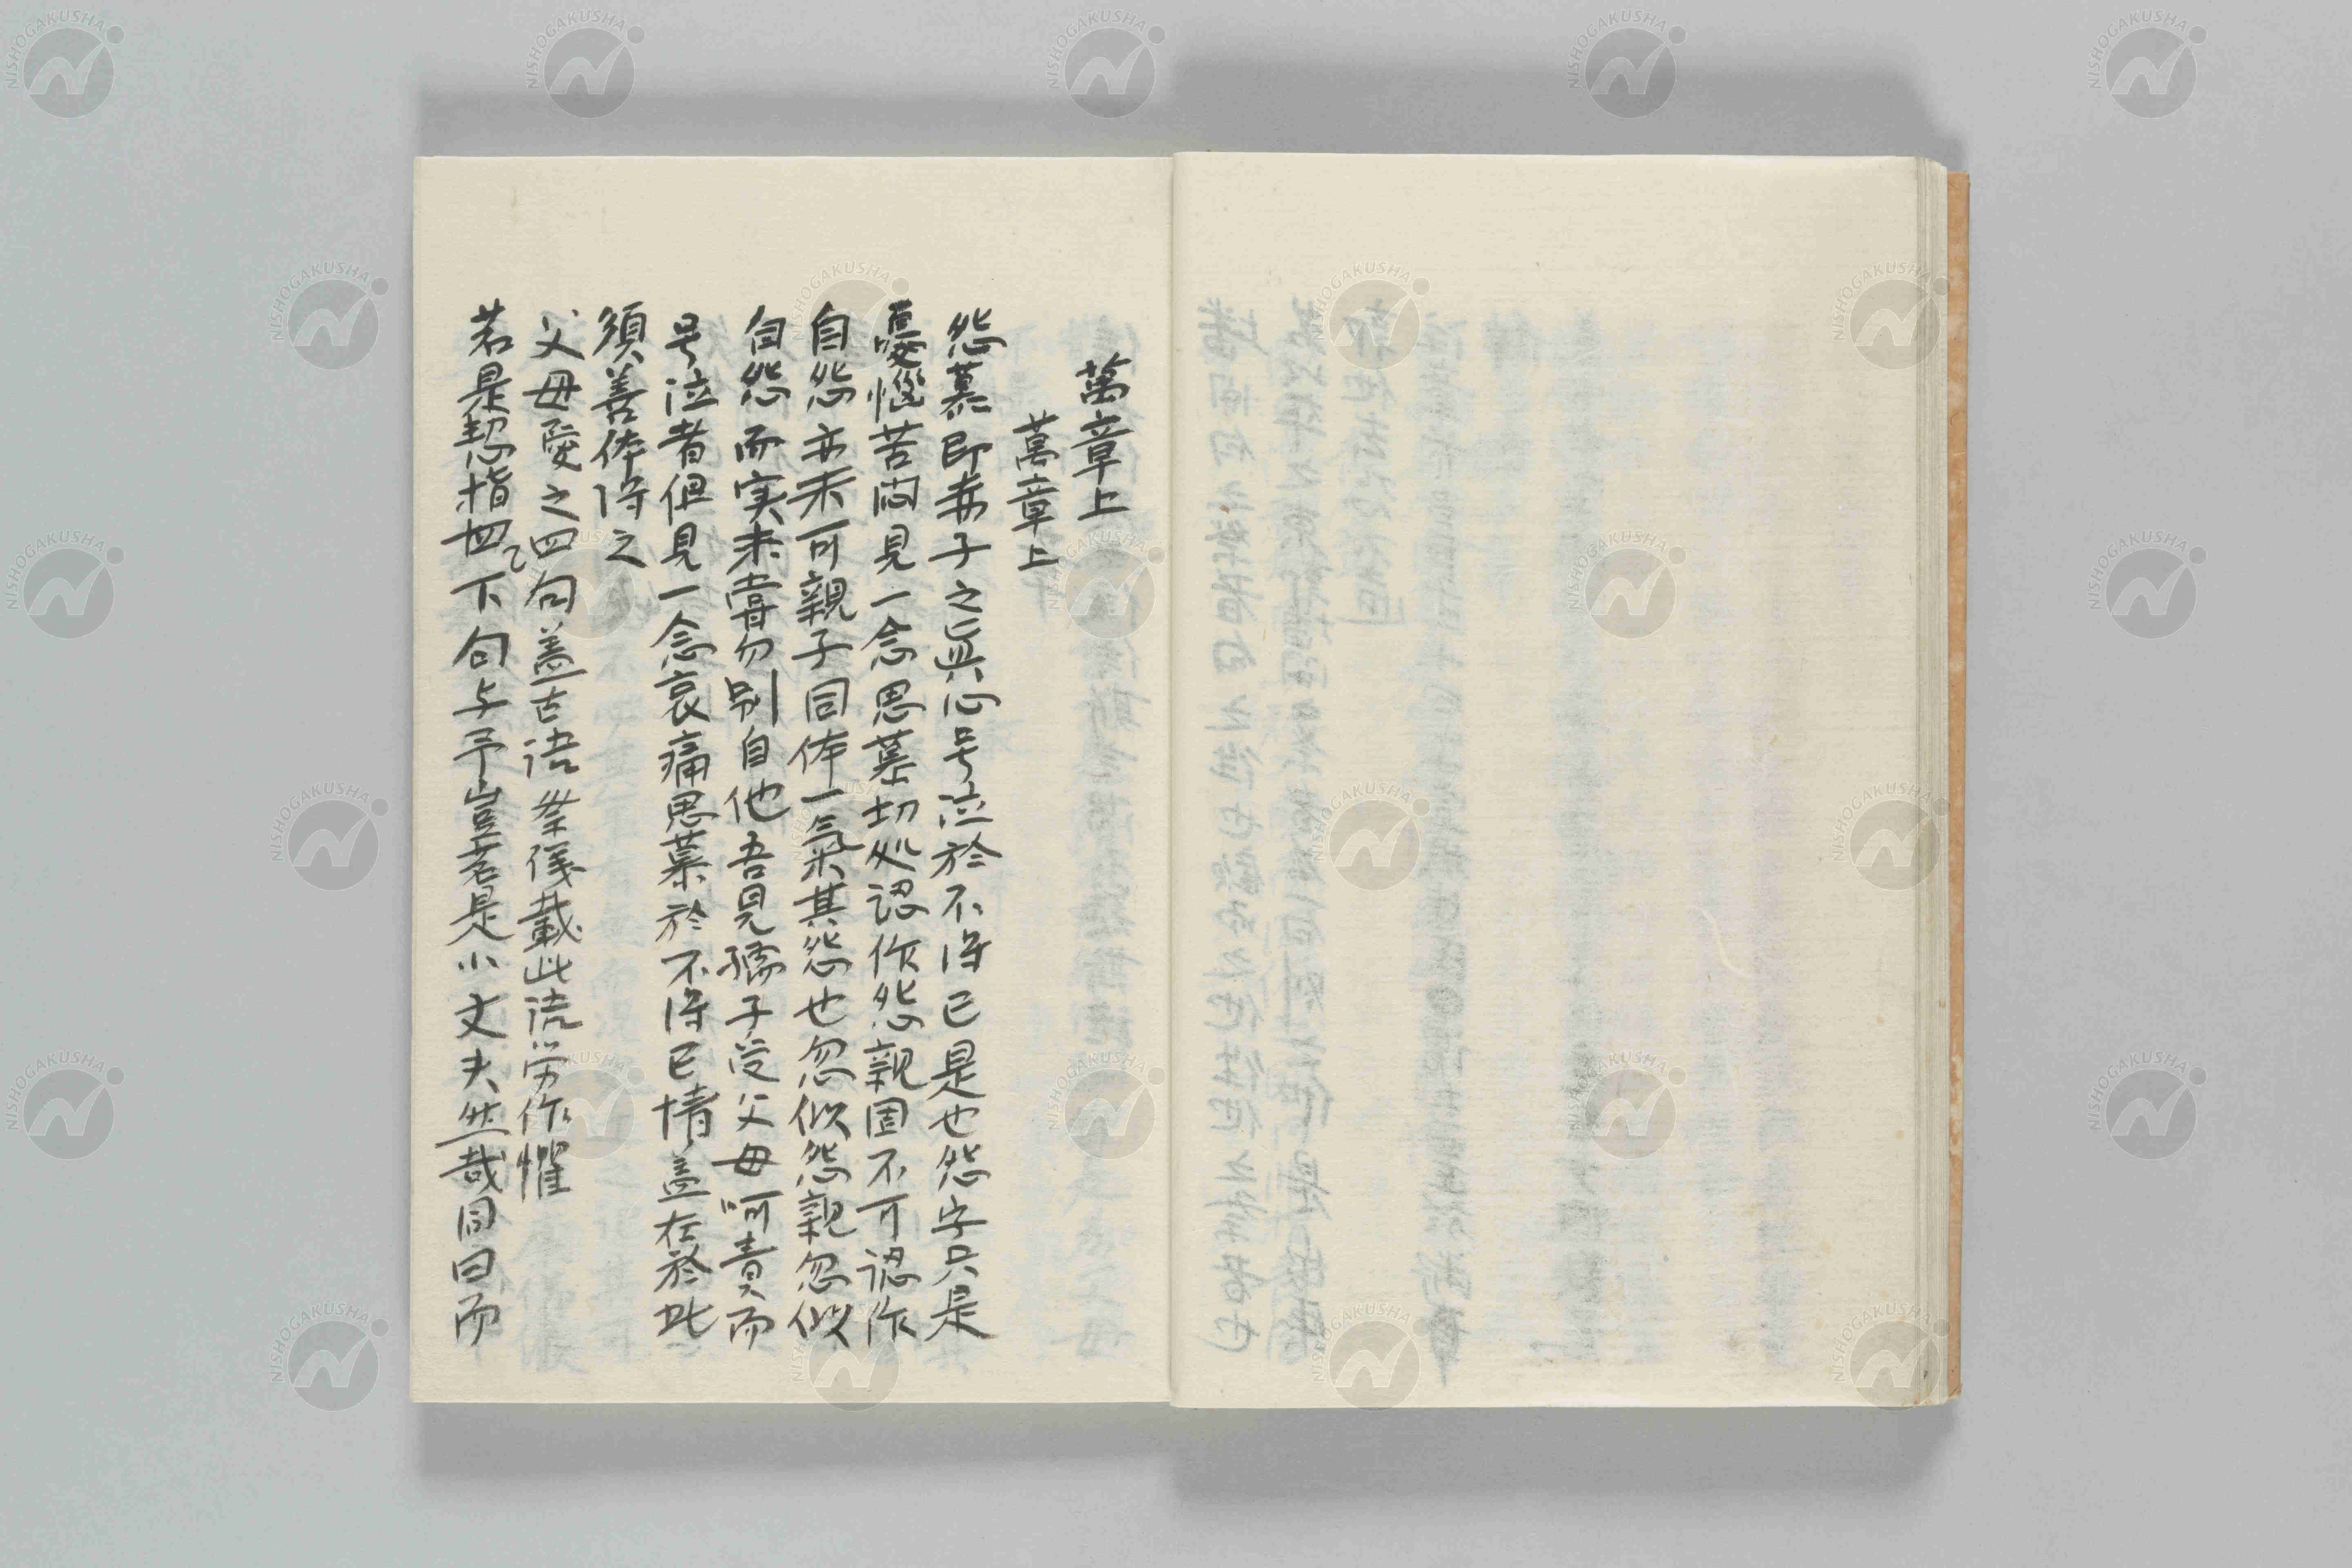 萬章上
萬章上
怨慕即赤子之眞心号泣於不得已是也怨字只是
憂惱苦悶見一念思慕切処認作怨親固不可認作
自怨亦未可親子同体一氣其怨也忽似怨親忽似
自怨而実未嘗勿別自他吾見孺子受父母呵責而
号泣者但見一念哀痛思慕於不得已情盖在於此
須善体得之
父母愛之四句盖古语祭儀載此语労作懼
若是恝指四下句与予豈若是小丈夫然哉同曰而
NISHOGAKUSHA